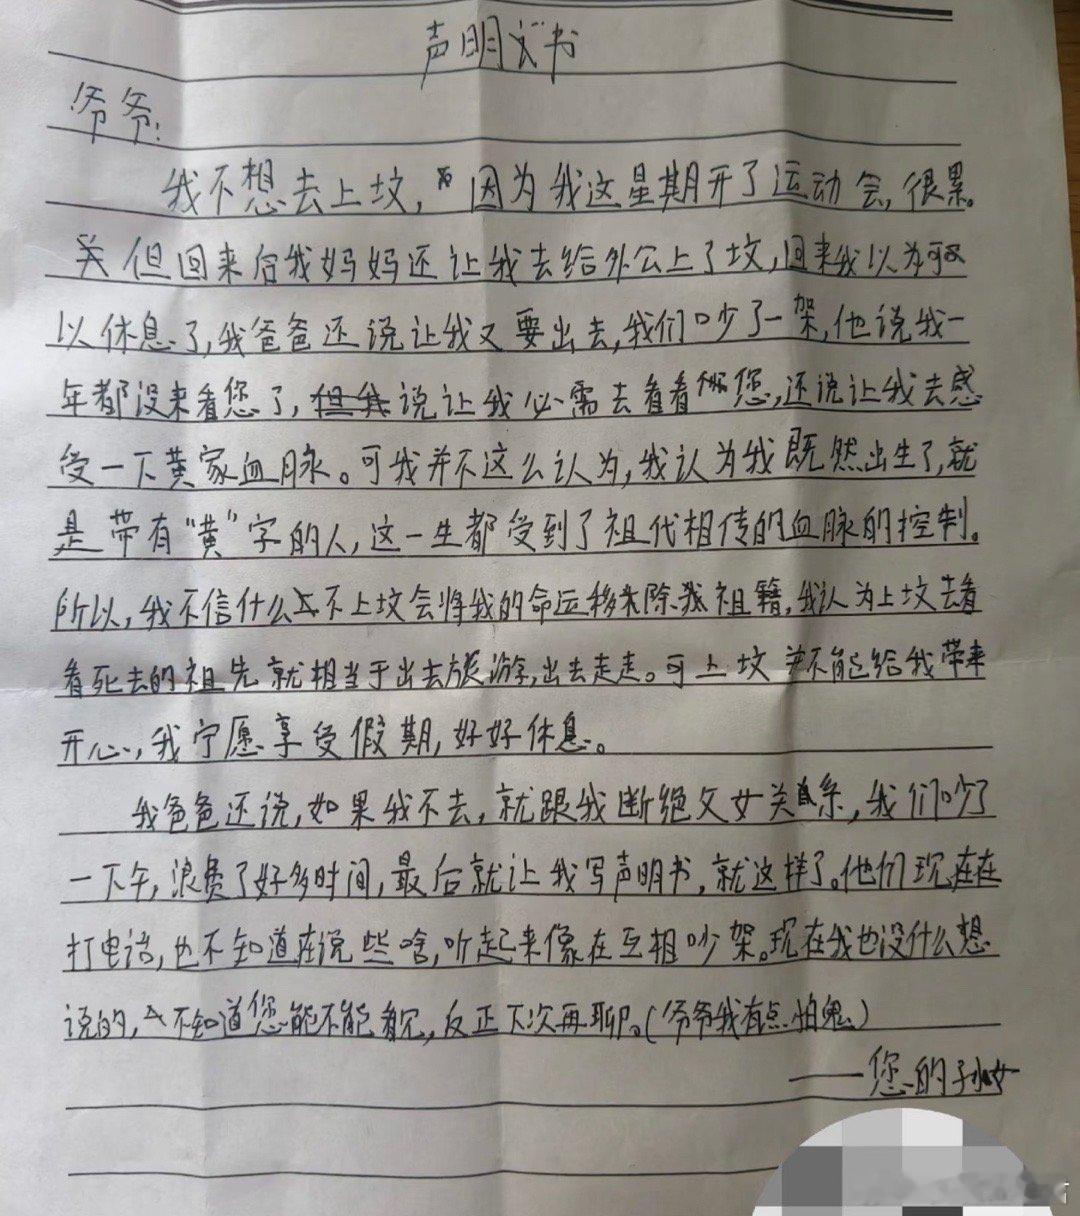 声明书
爷爷:
我不想去上坟,因为我这星期开了运动会,很累。
但回来后我妈妈还让我去给外公上了坟,回来我以为可
以休息了,我爸爸还说让我又要出去,我们吵了一架,他说我一
年都没来看您了,但我说让我必需去看看您,还说让我去感
受一下黄家血脉。可我并不这么认为,我认为我既然出生了,就
是带有“黄”字的人,这一生都受到了祖代相传的血脉的控制。
所以,我不信什么不上坟会将我的命运移来除我祖籍,我认为上坟去看
看死去的祖先就相当于出去旅游,出去走走。可上坟并不能给我带来
开心,我宁愿享受假期,好好休息。
我爸爸还说,如果我不去,就跟我断绝父女关系,我们吵了
一下午,浪费了好多时间,最后就让我写声明书,就这样了。他们现在在
打电话,也不知道在说些啥,听起来像在互相吵架。现在我也没什么想
说的,不知道您能不能看见,反正下次再聊。(爷爷我有点怕鬼)
——您的孙女